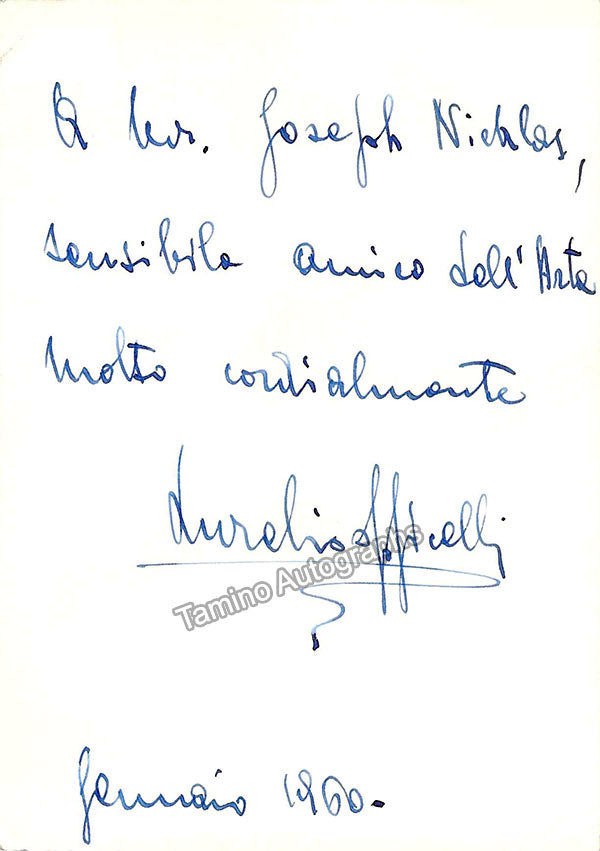 A Mr. Joseph Nicklas,
sensibile amico dell'Arte
molto cordialmente
Aurelio
Tamino Autographs
Gennaio 1960.